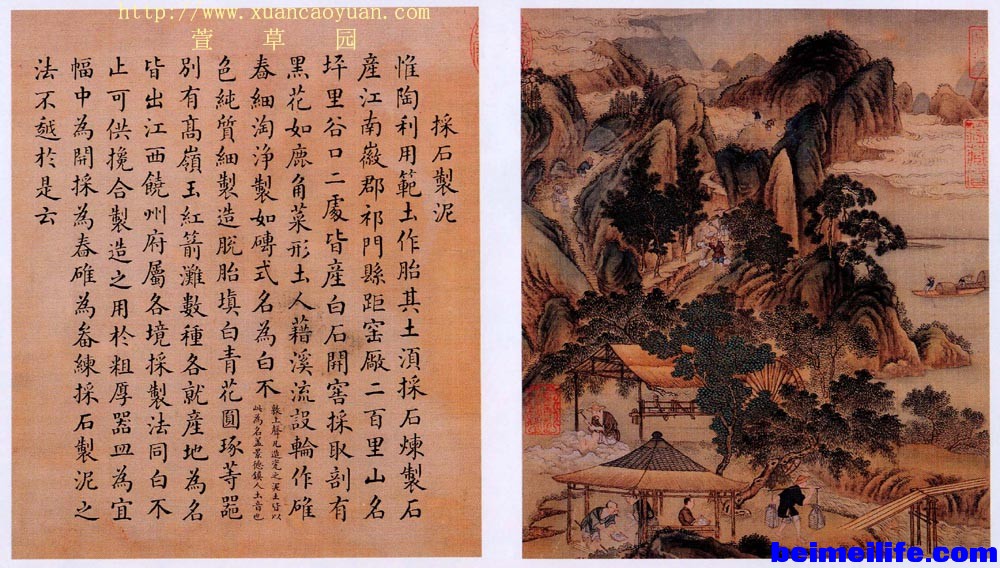 http://www.xuancaoyuan.com/
萱草园
採石製泥
惟陶利用範土作胎其土湏採石煉製石
產江南徽郡祁門縣距窑厰二百里山名
坪里谷口二處皆產白石開窖採取剖有
黑花如鹿角菜形土人藉溪流設輪作碓
舂細淘淨製如磚式名為白不
敦上聲凡造瓷之泥土皆以
此為名蓋景德鎮人土音也
色純質細製造脫胎填白青花圓琢等器
別有高嶺玉紅箭灘數種各就產地為名
皆出江西饒州府屬各境採製法同白不
止可供攙合製造之用於粗厚器皿為宜
幅中為開採為舂碓為畚練採石製泥之
法不越於是云
beimeilife.com